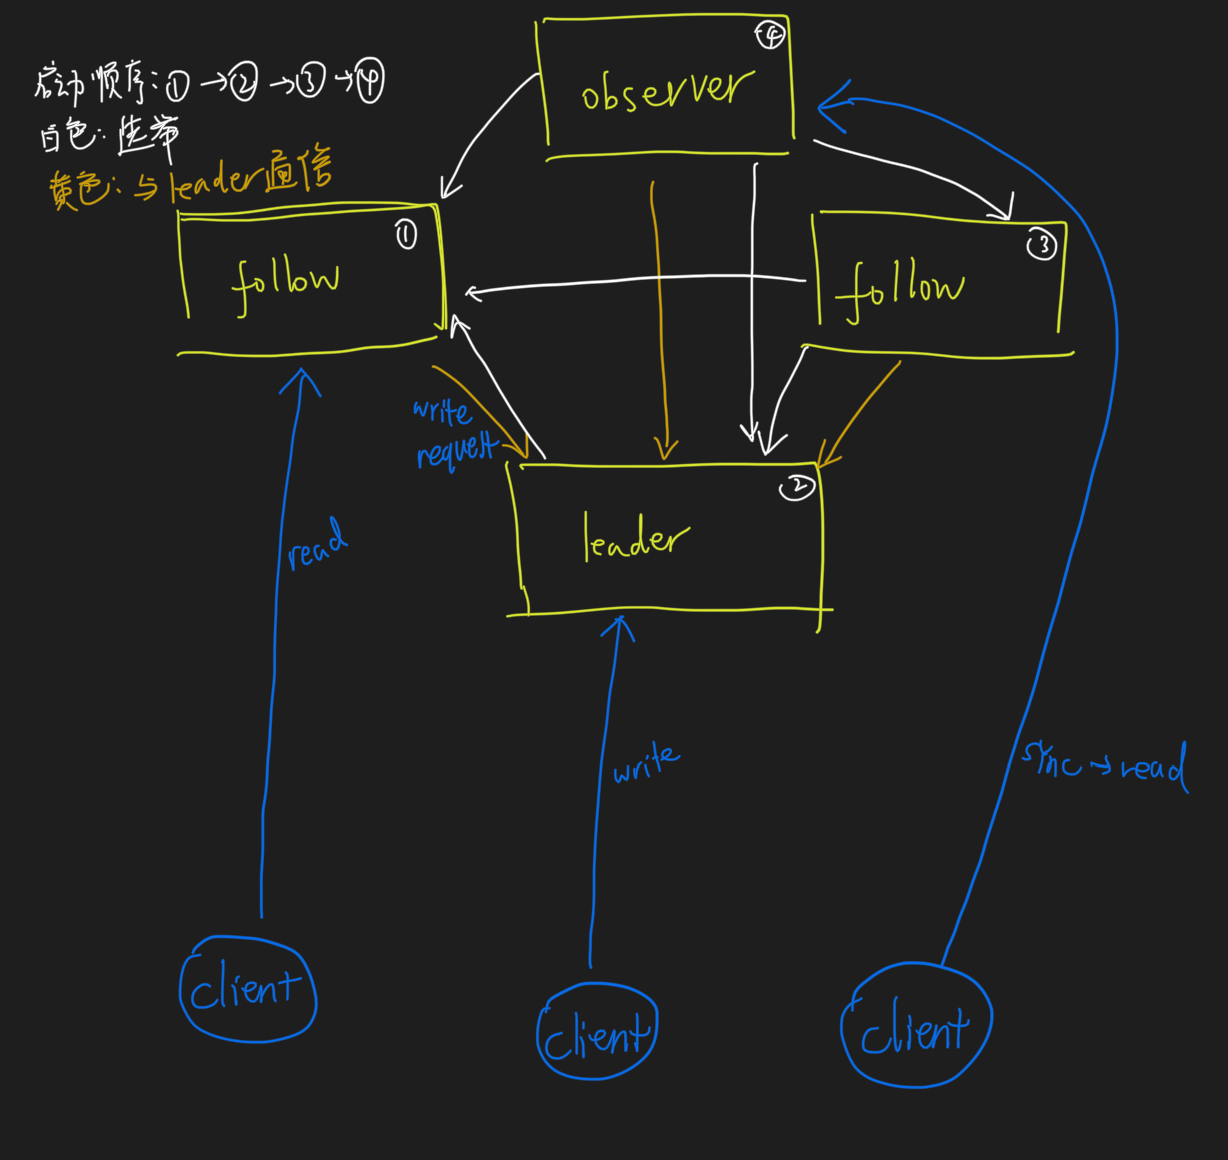 启动顺序: ① → ② → ③ → ④
白色: 选举
黄色: 与leader通信
④
observer
①
follow
③
follow
write
request
②
leader
read
write
sync → read
client
client
client